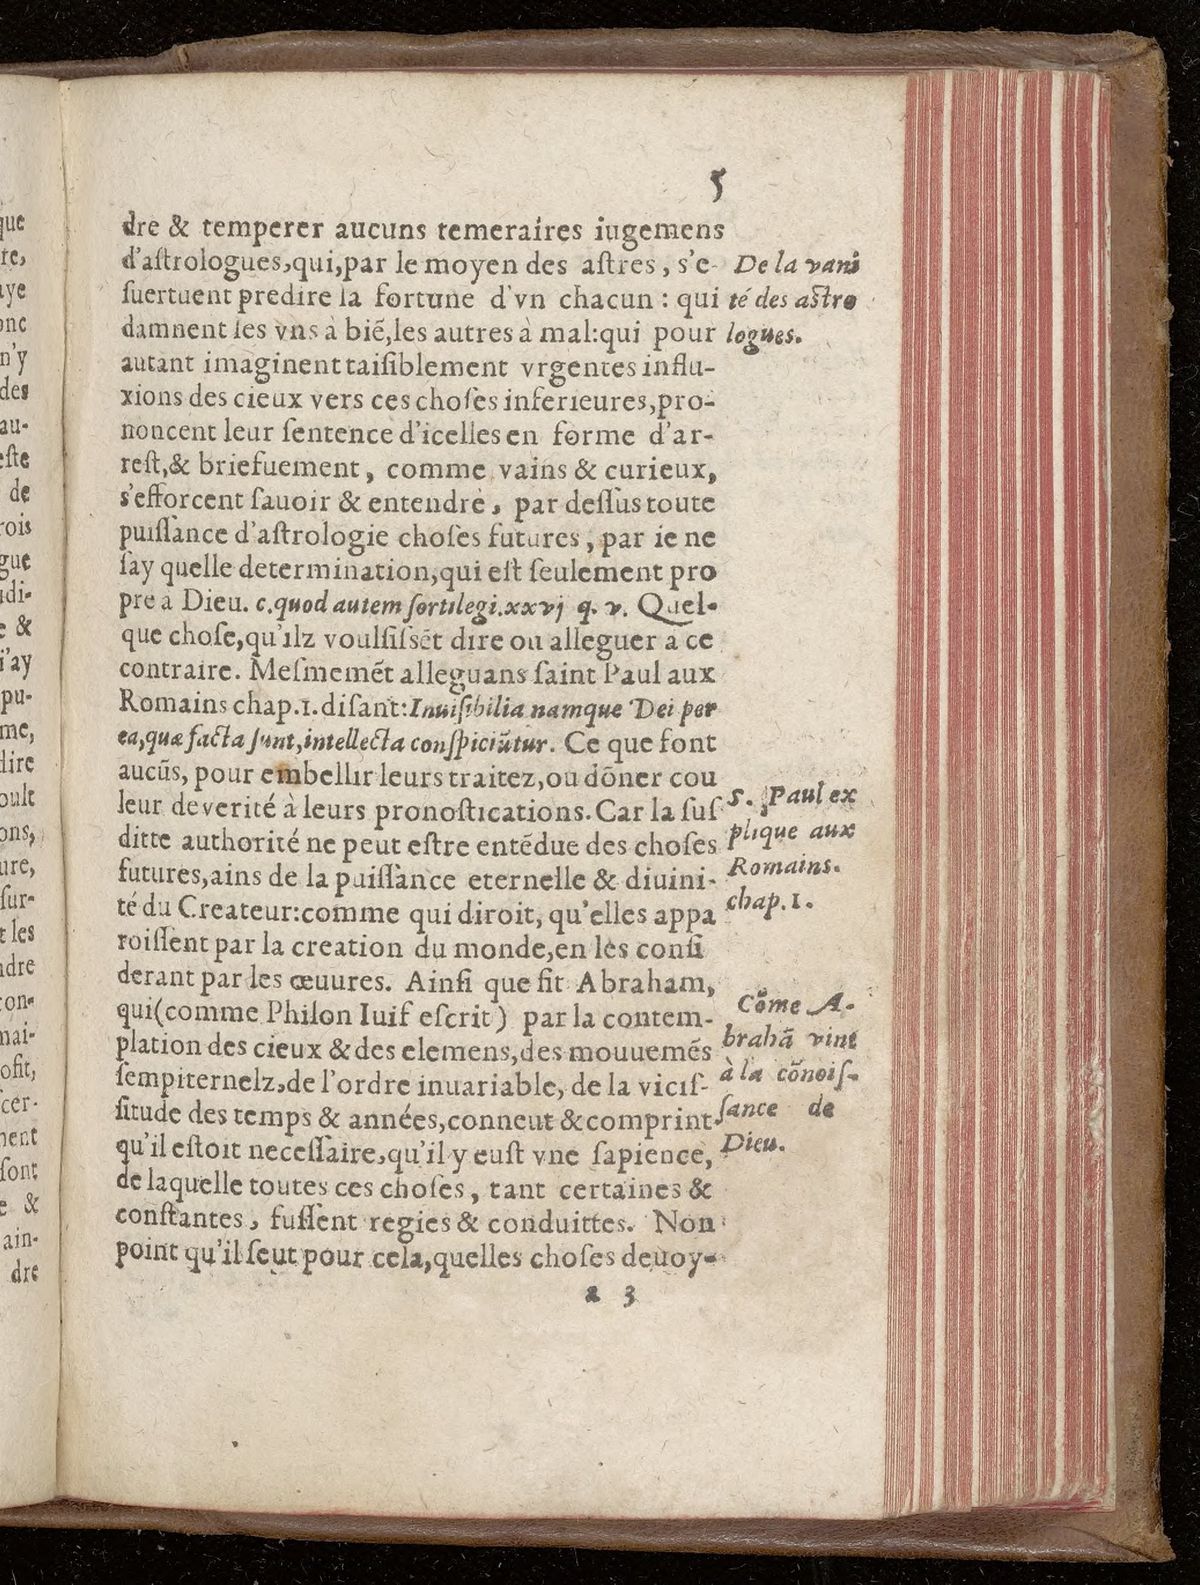 5
dre & temperer aucuns temeraires iugemens
d'aſtrologues,qui,par le moyen des aſtres, s'e-
ſuertuent predire la fortune d'vn chacun : qui
damnent les vns à biẽ,les autres à mal:qui pour
autant imaginent taiſiblement vrgentes influ-
xions des cieux vers ces choſes inferieures,pro-
noncent leur ſentence d'icelles en forme d'ar-
reſt,& briefuement, comme vains & curieux,
s'efforcent ſauoir & entendre, par deſſus toute
puiſſance d'aſtrologie choſes futures, par ie ne
ſay quelle determination,qui eſt ſeulement pro
pre à Dieu. c.quod autem ſortilegi.xxvj q. v. Quel-
que choſe,qu'ilz voulſiſsẽt dire ou alleguer à ce
contraire. Meſmemẽt alleguans ſaint Paul aux
Romains chap.1.diſant:Inuiſibilia namque Dei per
ea,quæ facta ſunt,intellecta conſpiciũtur. Ce que font
aucũs, pour embellir leurs traitez,ou dõner cou
leur de verité à leurs pronoſtications. Car la ſuſ
ditte authorité ne peut eſtre entẽdue des choſes
futures,ains de la puiſſance eternelle & diuini-
té du Createur:comme qui diroit, qu'elles appa
roiſſent par la creation du monde,en les conſi
derant par les œuures. Ainſi que fit Abraham,
qui(comme Philon Iuif eſcrit) par la contem-
plation des cieux & des elemens,des mouuemẽs
ſempiternelz,de l'ordre inuariable, de la viciſ-
ſitude des temps & années,conneut & comprint
qu'il eſtoit neceſſaire,qu'il y euſt vne ſapience,
de laquelle toutes ces choſes, tant certaines &
conſtantes, fuſſent regies & conduittes. Non
point qu'il ſeut pour cela,quelles choſes deuoy-
a 3
De la vani
té des aſtro
logues.
S. Paul ex
plique aux
Romains.
chap.1.
Cõme A-
brahã vint
à la cõnoiſ-
ſance de
Dieu.
que
te,
aye
onc
n'y
des
au-
eſte
de
rois
gue
udi-
e &
i'ay
pu-
me,
dire
oult
ons,
ure,
ſur-
t les
ndre
con-
mai-
ofit,
cer-
nent
ſont
e &
ain-
dre